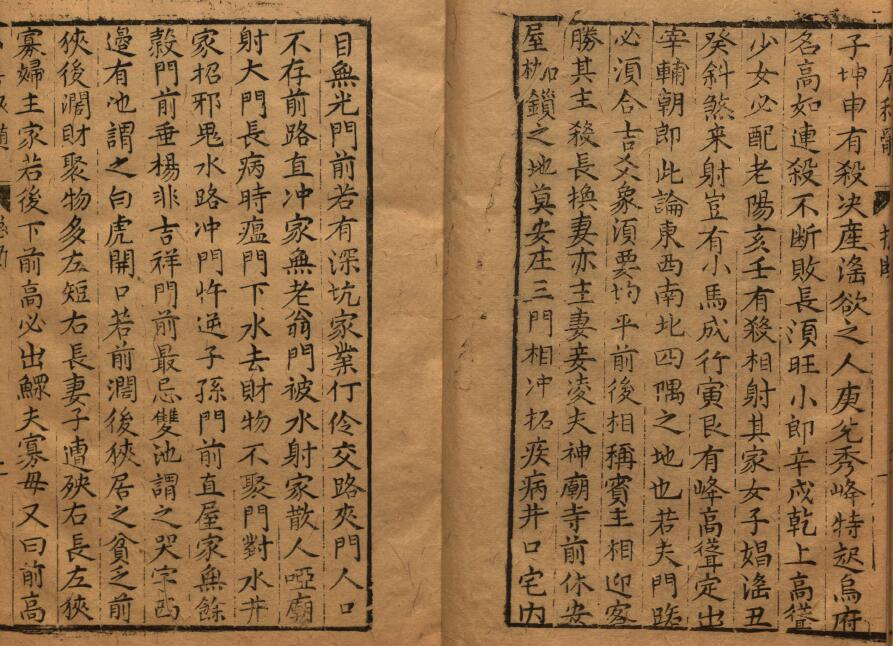 子坤申有殺決產滛欲之人庚兊秀峰特起烏府
名高如連殺不断敗長湏旺小郎辛戍乾上高聳
少女必配老陽亥壬有殺相射其家女子娼滛丑
癸斜煞来射豈有小馬成行寅艮有峰高聳定出
宰輔朝郎此論東西南北四隅之地也若夫門路
必湏合吉爻象湏要均平前後相稱賔主相迎客
勝其主殺長換妻亦主妻妾凌夫神廟寺前休安
屋枷杻鎖之地莫安庄三門相冲招疾病井口宅内
目無光門前若有深坑家業伶仃交路夾門人口
不存前路直冲家無老翁門被水射家散人啞廟
射大門長病時瘟門下水去財物不聚門對水井
家招邪鬼水路冲門忤逆子孫門前直屋家無餘
榖門前垂楊非吉祥門前最忌雙池謂之哭字西
邉有池謂之白虎開口若前濶後狹居之貧乏前
狹後濶財聚物多左短右長妻子遭殃右長左狹
寡婦主家若後下前高必出鰥夫寡母又曰前高